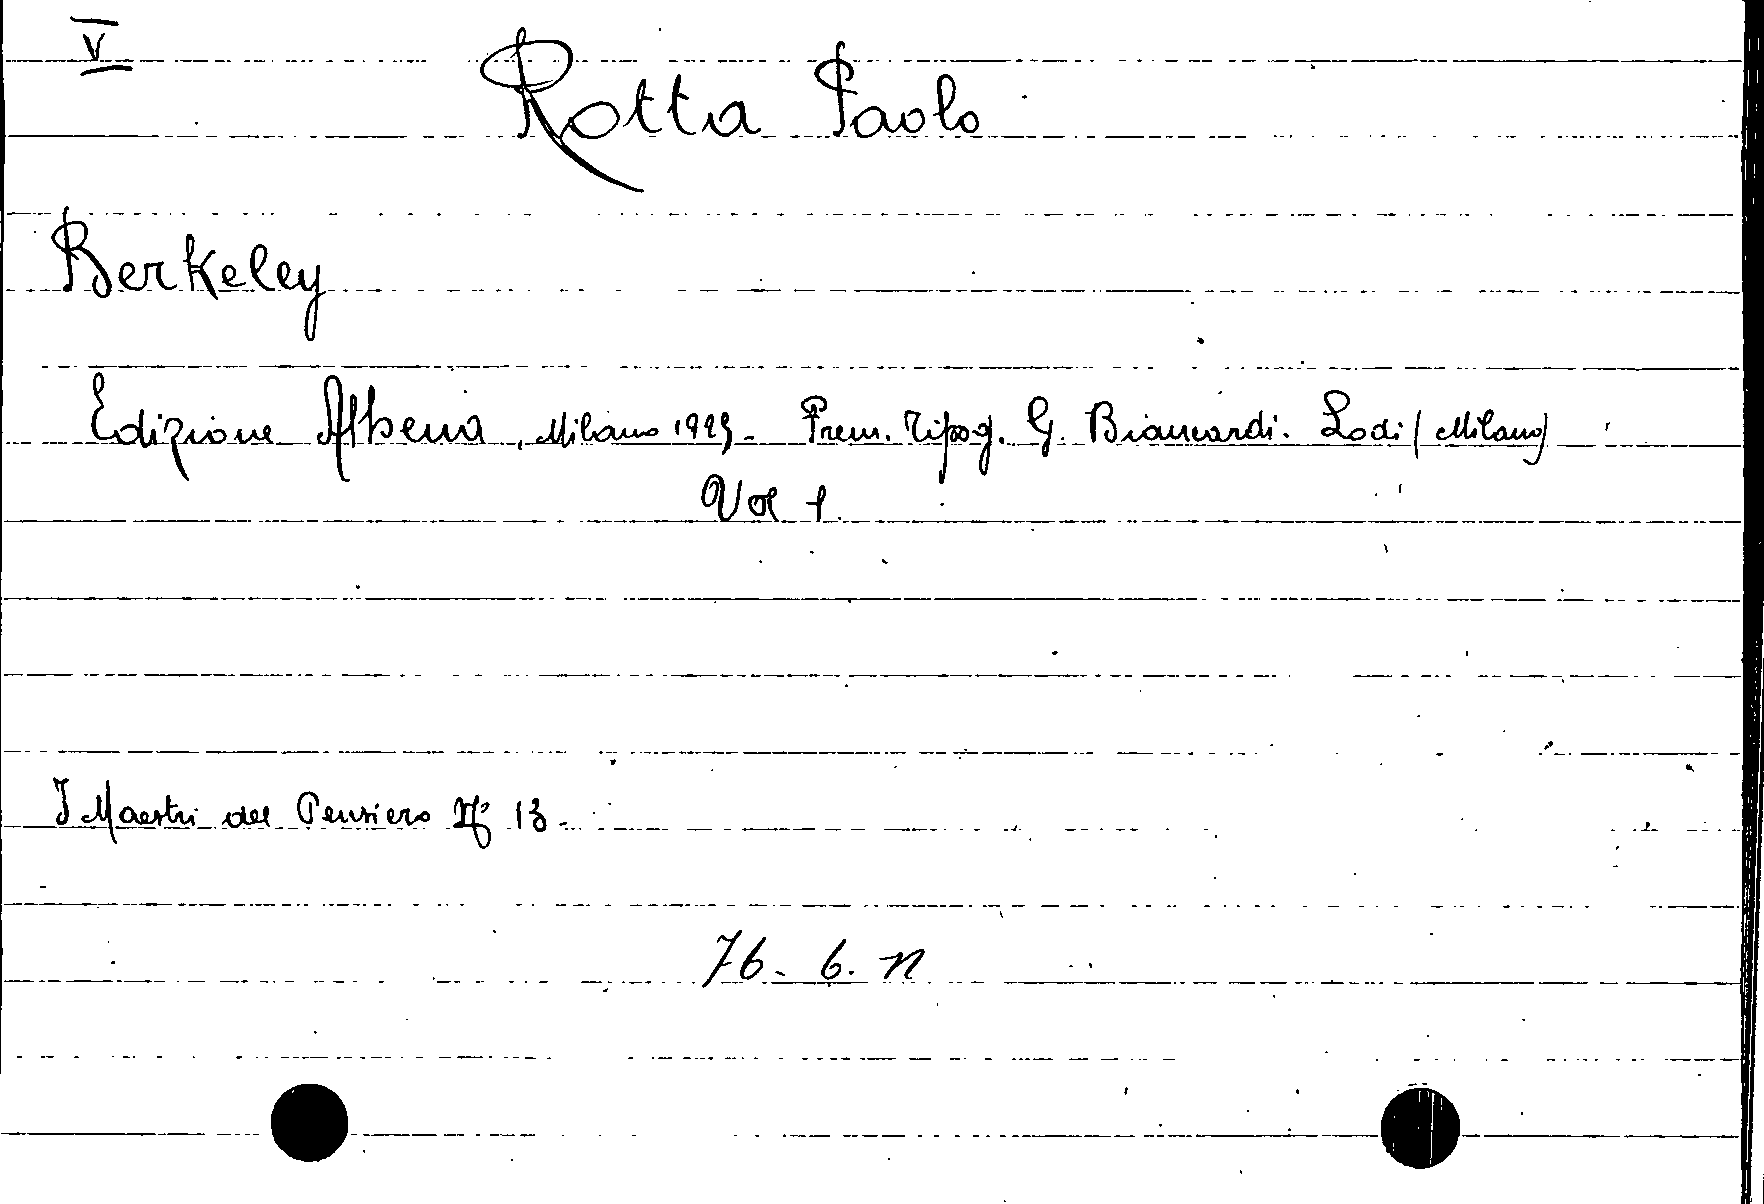 V
Rotta Paolo
Berkeley
Edizione Athena, Milano 1925 - Prem. Tipog. G. Biancardi. Lodi (Milano)
Vol 1.
I Maestri del Pensiero N° 13.
76. 6. n